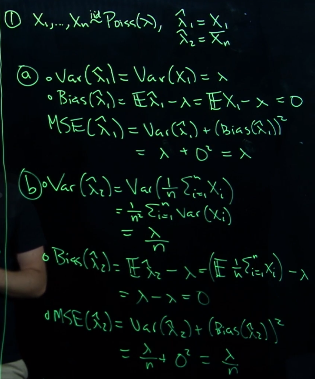 ① X₁,...,Xₙ iid~ Poiss(λ), λ̂₁ = X₁
λ̂₂ = X̄ₙ
ⓐ • Var(λ̂₁) = Var(X₁) = λ
• Bias(λ̂₁) = 𝔼λ̂₁ - λ = 𝔼X₁ - λ = 0
MSE(λ̂₁) = Var(λ̂₁) + (Bias(λ̂₁))²
= λ + 0² = λ
ⓑ • Var(λ̂₂) = Var(1/n Σᵢ₌₁ⁿ Xᵢ)
= 1/n² Σᵢ₌₁ⁿ Var(Xᵢ)
= λ/n
• Bias(λ̂₂) = 𝔼λ̂₂ - λ = (𝔼 1/n Σᵢ₌₁ⁿ Xᵢ) - λ
= λ - λ = 0
• MSE(λ̂₂) = Var(λ̂₂) + (Bias(λ̂₂))²
= λ/n + 0² = λ/n